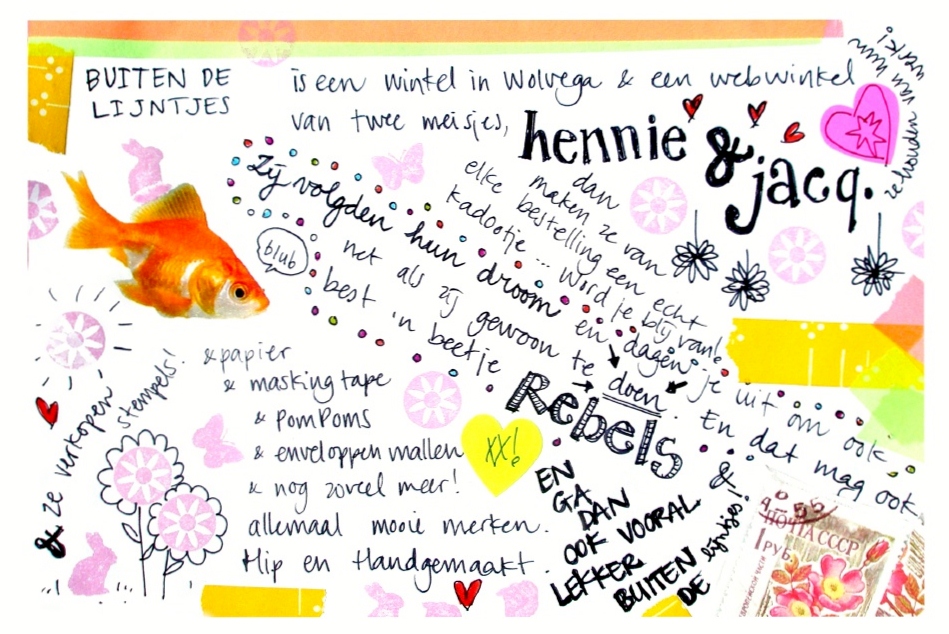 BUITEN DE
LIJNTJES
is een winkel in Wolvega & een webwinkel
van twee meisjes,
hennie &
jacq.
ze houden van hun werk!
Zij volgden hun droom en dagen je uit om ook
net als zij gewoon te doen. En dat mag ook
best 'n beetje
Rebels &
elke
kadootje ... Word je blij van!
maken ze van
bestelling een echt
dan
blub
& ze verkopen
stempels!
& papier
& maskingtape
& PomPoms
& enveloppen mallen
& nog zoveel meer!
allemaal mooie merken.
Hip en Handgemaakt.
XX!
EN
GA
DAN
OOK VOORAL
LEKKER
BUITEN
DE lijntjes!
ПОЧТА СССР
1 РУБ